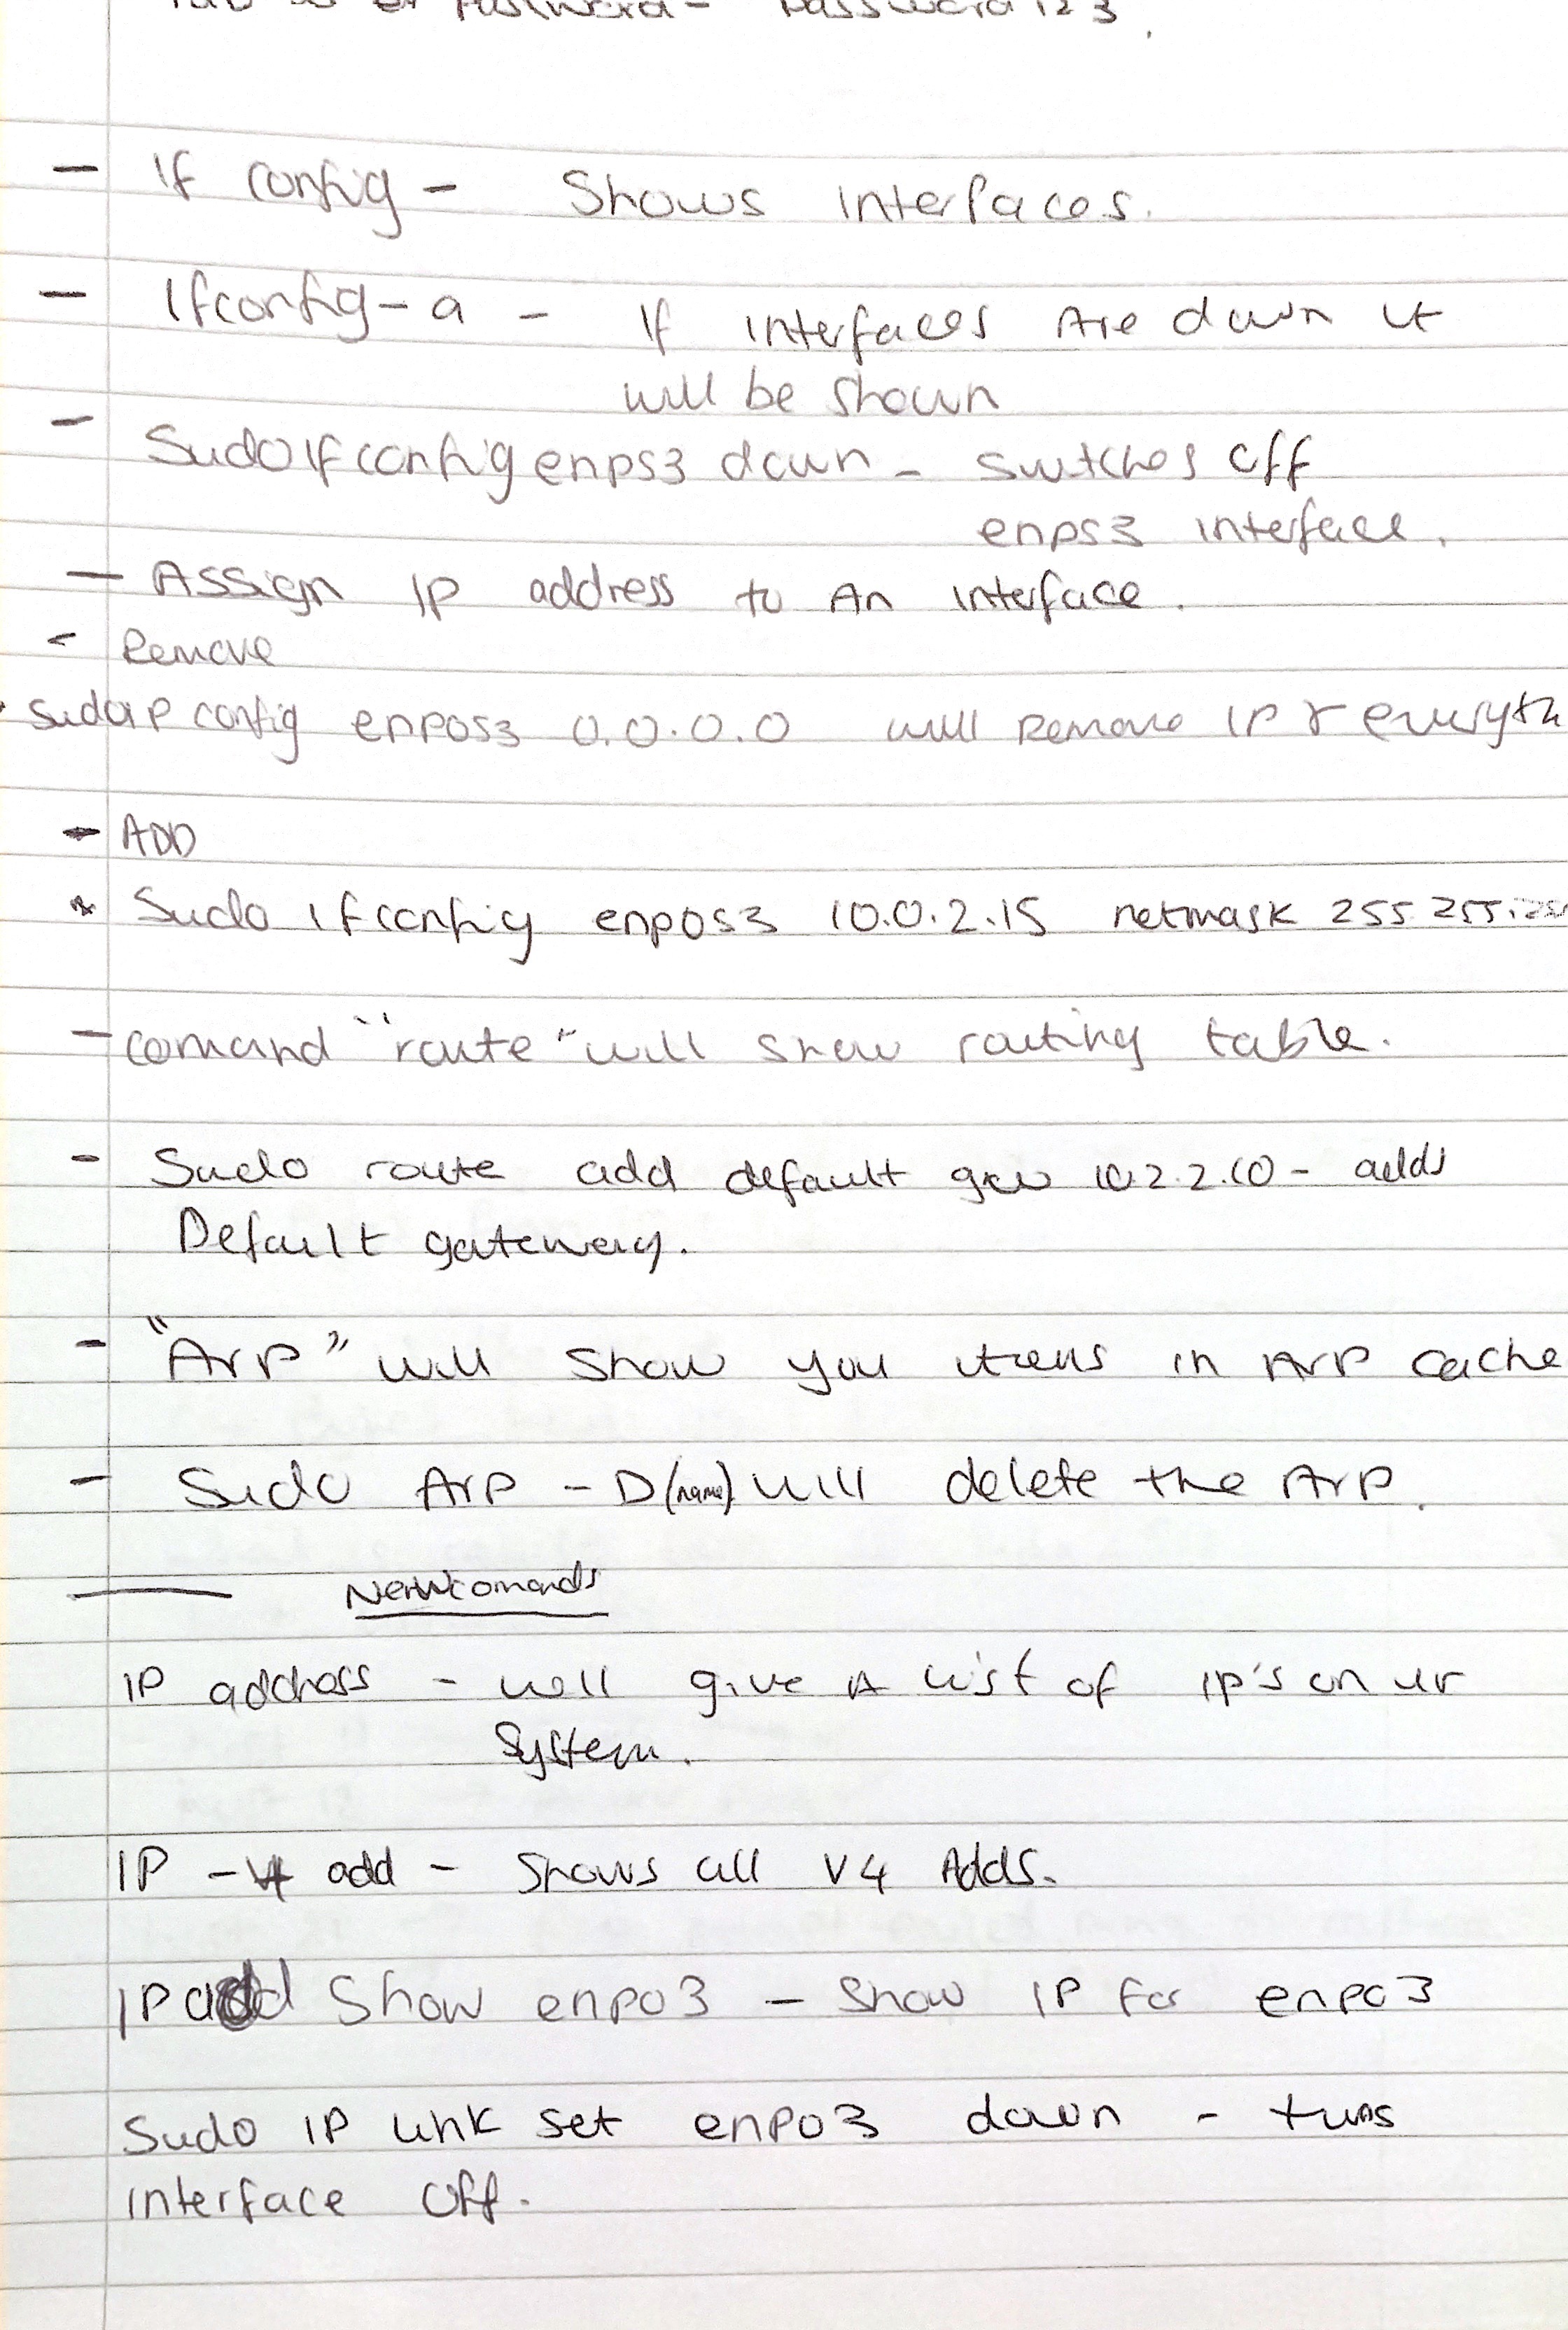 Password - Password123
- If config - Shows interfaces.
- Ifconfig -a - If interfaces Are down it
will be shown
-
Sudo If config enps3 down - switches off
enps3 interface.
- Assign IP address to An interface.
- Remove
sudo config enp0s3 0.0.0.0 will Remove IP & everyth
- ADD
* Sudo ifconfig enp0s3 10.0.2.15 netmask 255.255.
- comand "route" will show routing table.
- Sudo route add default gw 10.2.2.10 - adds
Default gateway.
- "Arp" will show you items in Arp cache
- Sudo Arp -D (name) will delete the Arp.
New comands
IP address - will give A list of ip's on ur
System.
IP -4 add - Shows all V4 Adds.
IP add Show enp03 - Show IP for enp03
Sudo IP link set enp03 down - turns
interface Off.